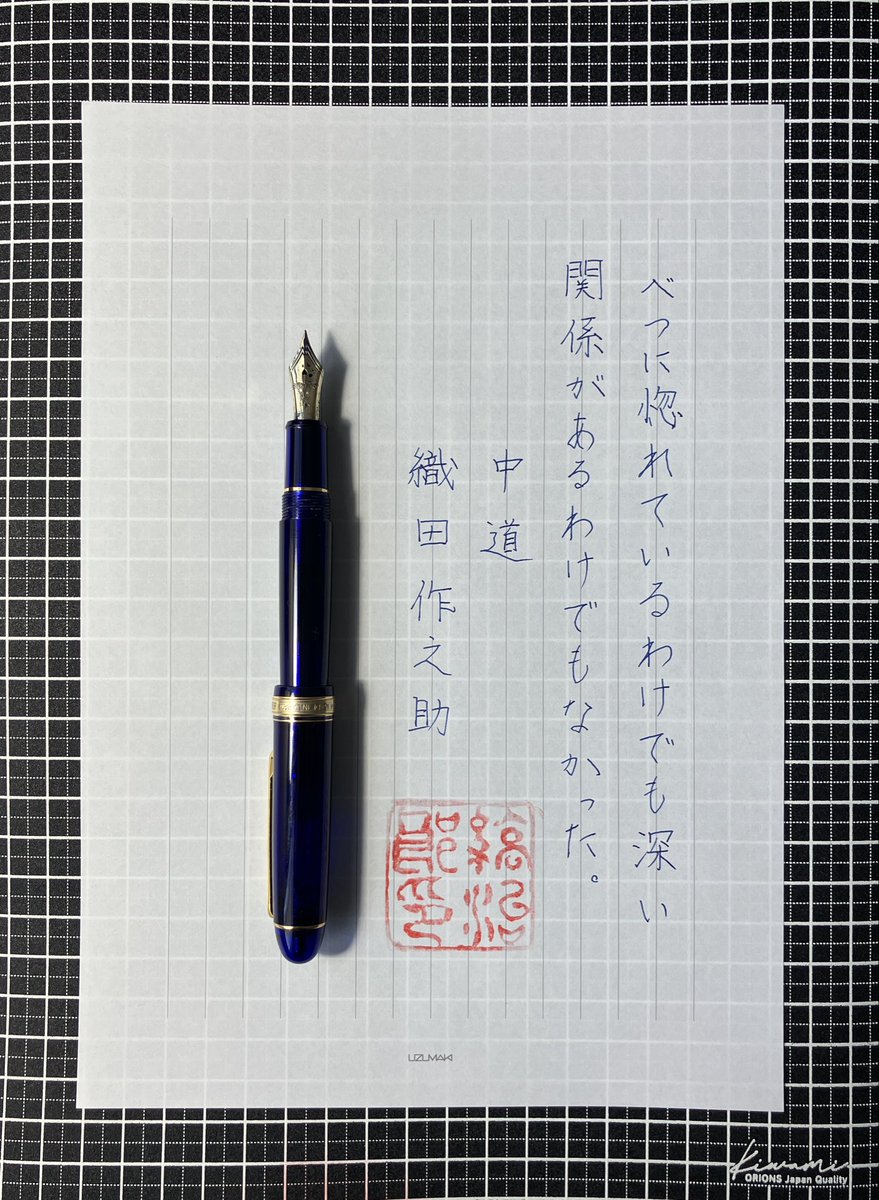 べつに惚れているわけでも深い
関係があるわけでもなかった。
中道
織田作之助
UZUMAKI
Kiwami
ORIONS Japan Quality